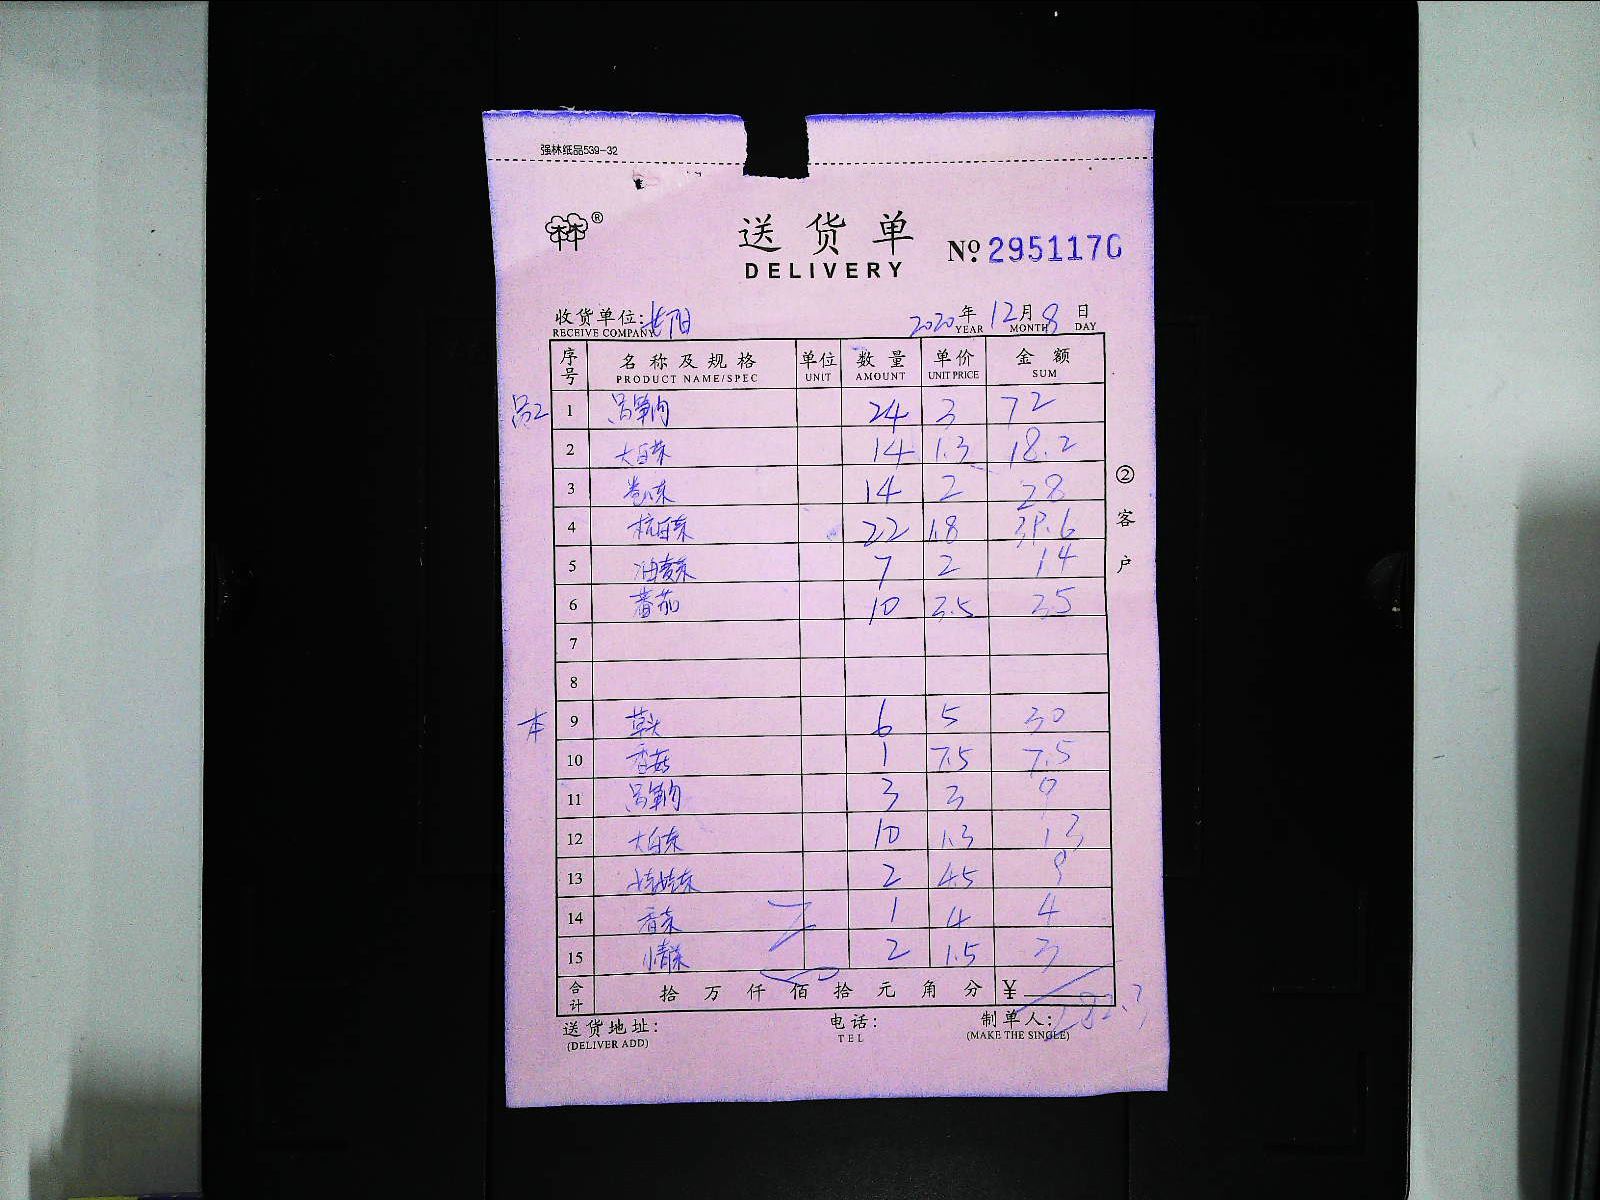 强林纸品539-32
林林®
送货单
DELIVERY
№ 2951170
收货单位:
RECEIVE COMPANY
2020年12月8日
YEAR MONTH DAY
序号 名称及规格 单位 数量 单价 金额
PRODUCT NAME/SPEC UNIT AMOUNT UNIT PRICE SUM
1 24 3 72
2 大白菜 14 1.3 18.2
3 卷心菜 14 2 28
4 杭白菜 22 1.8 39.6
5 油麦菜 7 2 14
6 蕃茄 10 3.5 35
7
8
本 9 草头 6 5 30
10 香菇 1 7.5 7.5
11 3 3 9
12 大白菜 10 1.3 13
13 娃娃菜 2 4.5 9
14 香菜 1 4 4
15 小青菜 2 1.5 3
合计 拾万仟佰拾元角分 ¥ 282.3
②客户
送货地址: 电话: 制单人:
(DELIVER ADD) TEL (MAKE THE SINGLE)